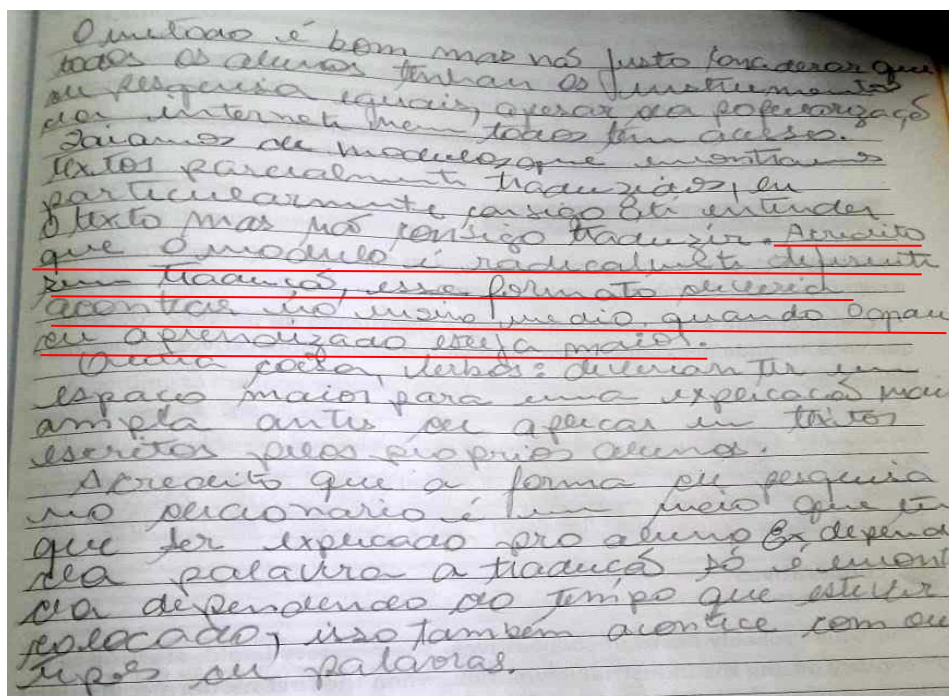 O metodo é bom mas nó justo considerar que
todos os alunos tenhan os instrumentos
de pesquisa iguais, apesar da popularizaçõ
da internet nem todos têm acesso.
Saiamos de modulos que encontramos
textos parcialmente traduzidos, eu
particularmente consigo até entender
o texto mas nó consigo traduzir. Acredito
que o modulo é radicalmente diferente
sem traduçõ, esse formato deveria
acontece no ensino medio, quando o grau
de aprendizado seja maior.
Outra coisa, verbos: deverian ter um
espaço maior para uma expicaçõ mai
ampla antes de apicar em textos
escritos pelos proprios alunos.
Acredito que a forma de pesquisa
no dicionario é um meio que te
que ser expicado pro aluno Ex depend
da palavra a traduçõ só é encon
da dependendo do tempo que estiver
colocado, isso também acontece com ou
tipos de palavras.